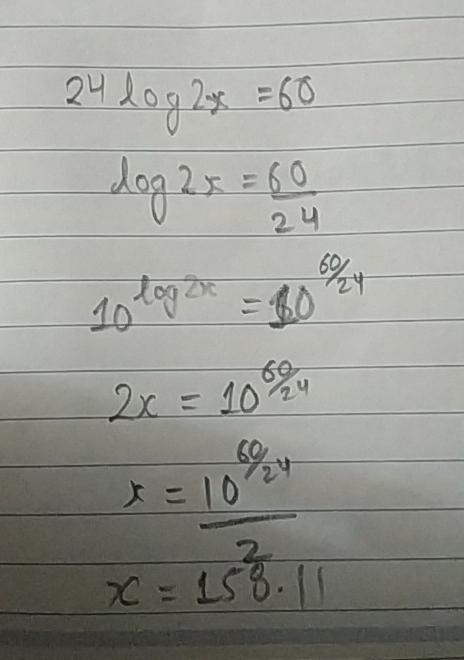 24 log 2x = 60
log 2x = 60/24
10^log 2x = 10^60/24
2x = 10^60/24
x = 10^60/24 / 2
x = 158.11